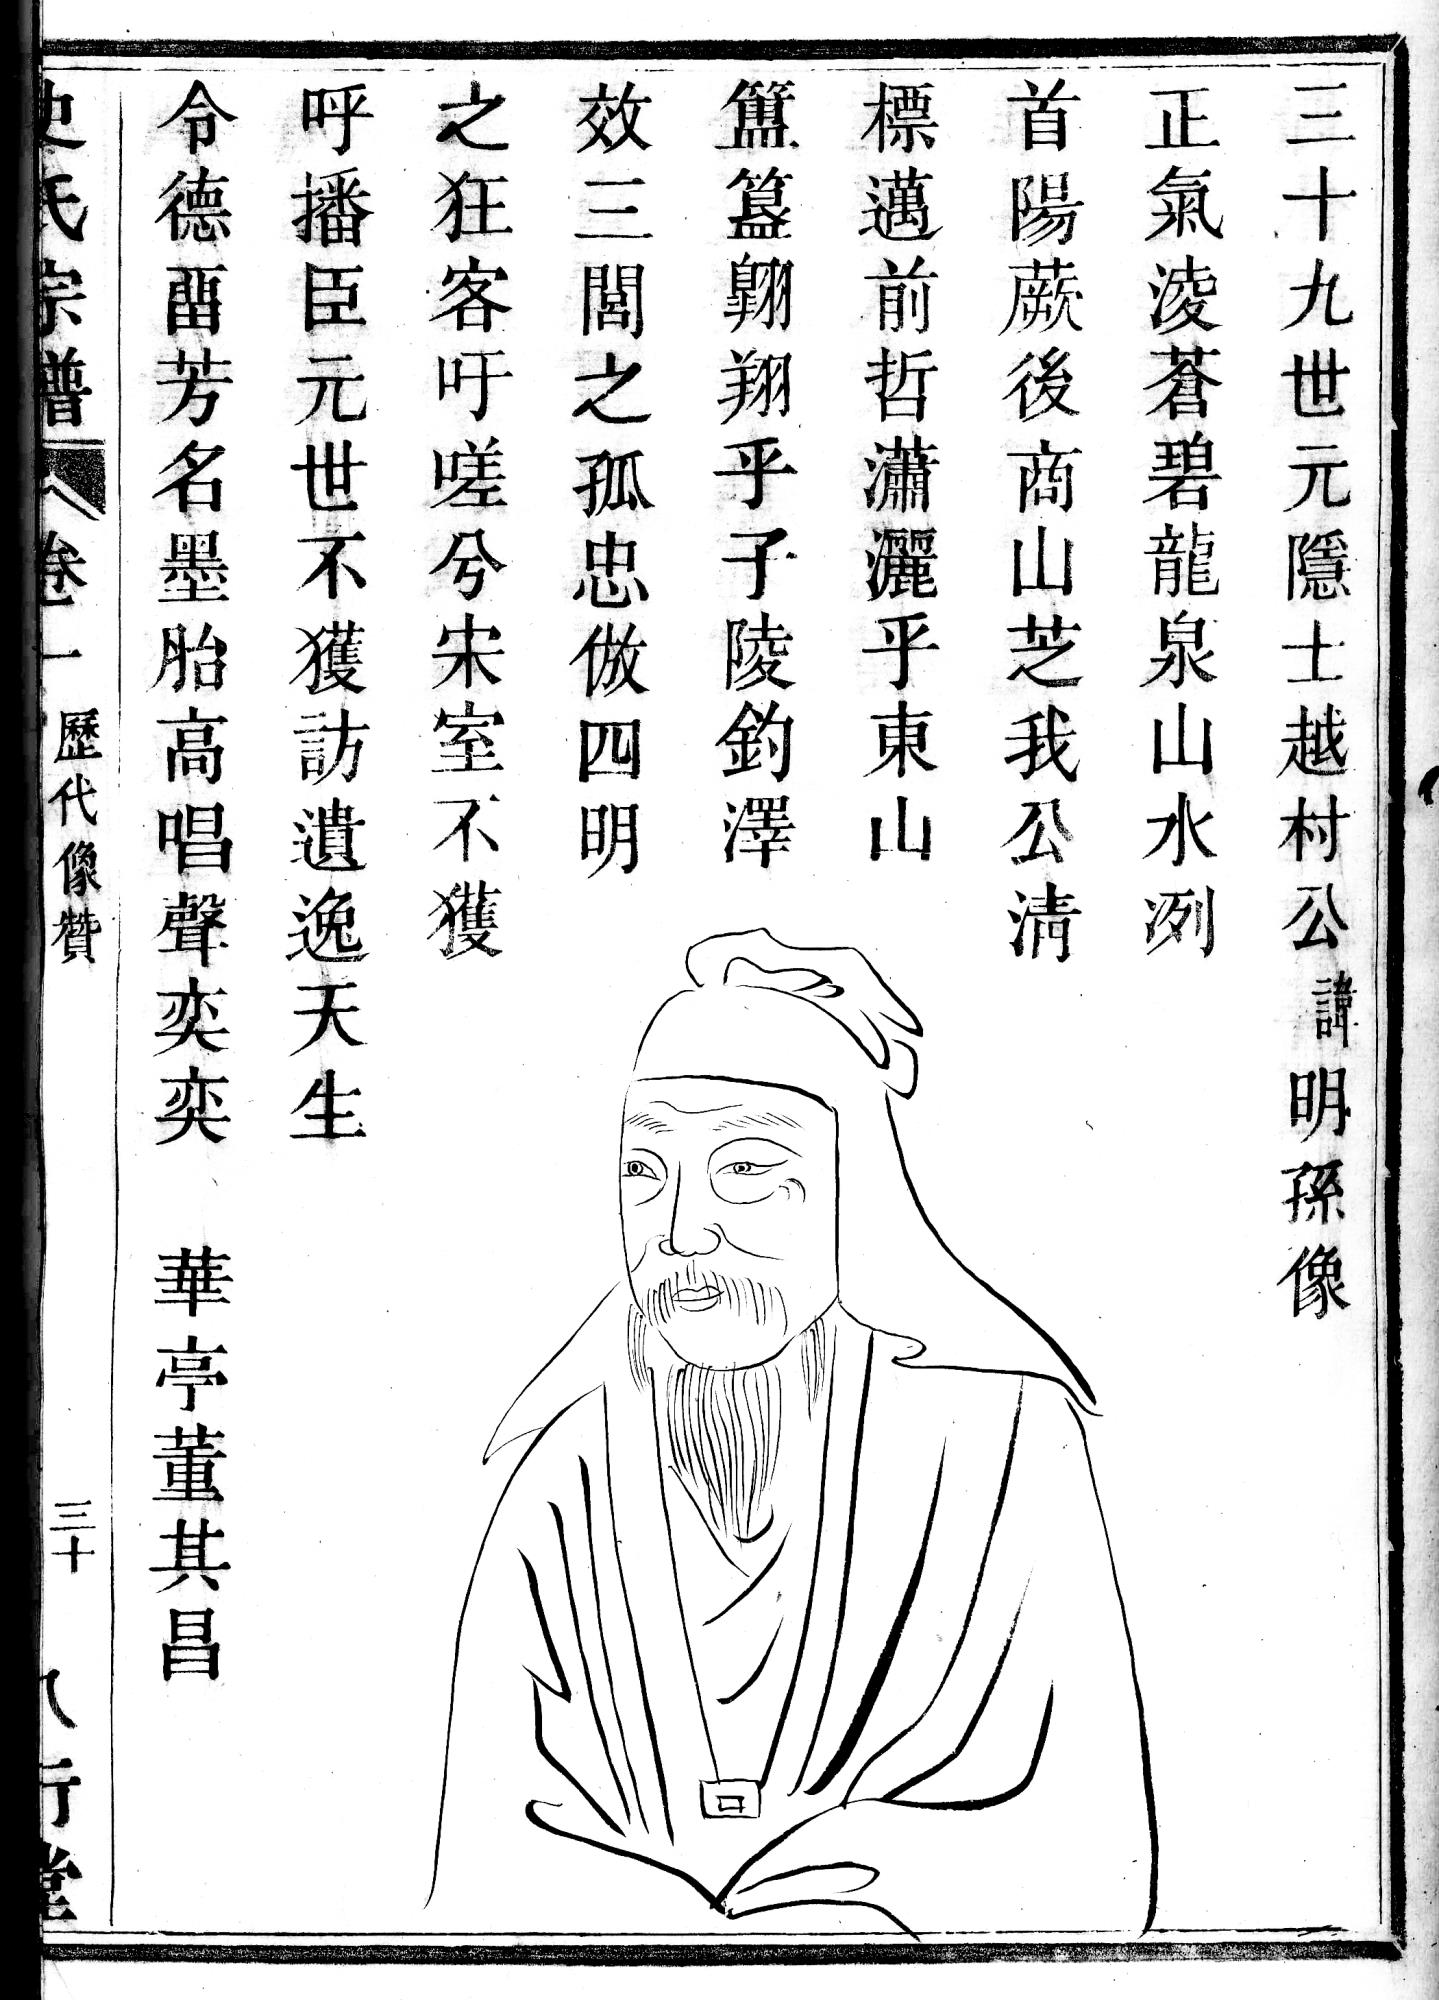 三十九世元隱士越村公諱明孫像
正氣淩蒼碧龍泉山水冽
首陽蕨後商山芝我公清
標邁前哲瀟灑乎東山
簠簋翺翔乎子陵釣澤
效三閭之孤忠倣四明
之狂客吁嗟兮宋室不獲
呼播臣元世不獲訪遺逸天生
令德畱芳名墨胎高唱聲奕奕　華亭董其昌
史氏宗譜　卷一　歷代像贊　三十　八行堂